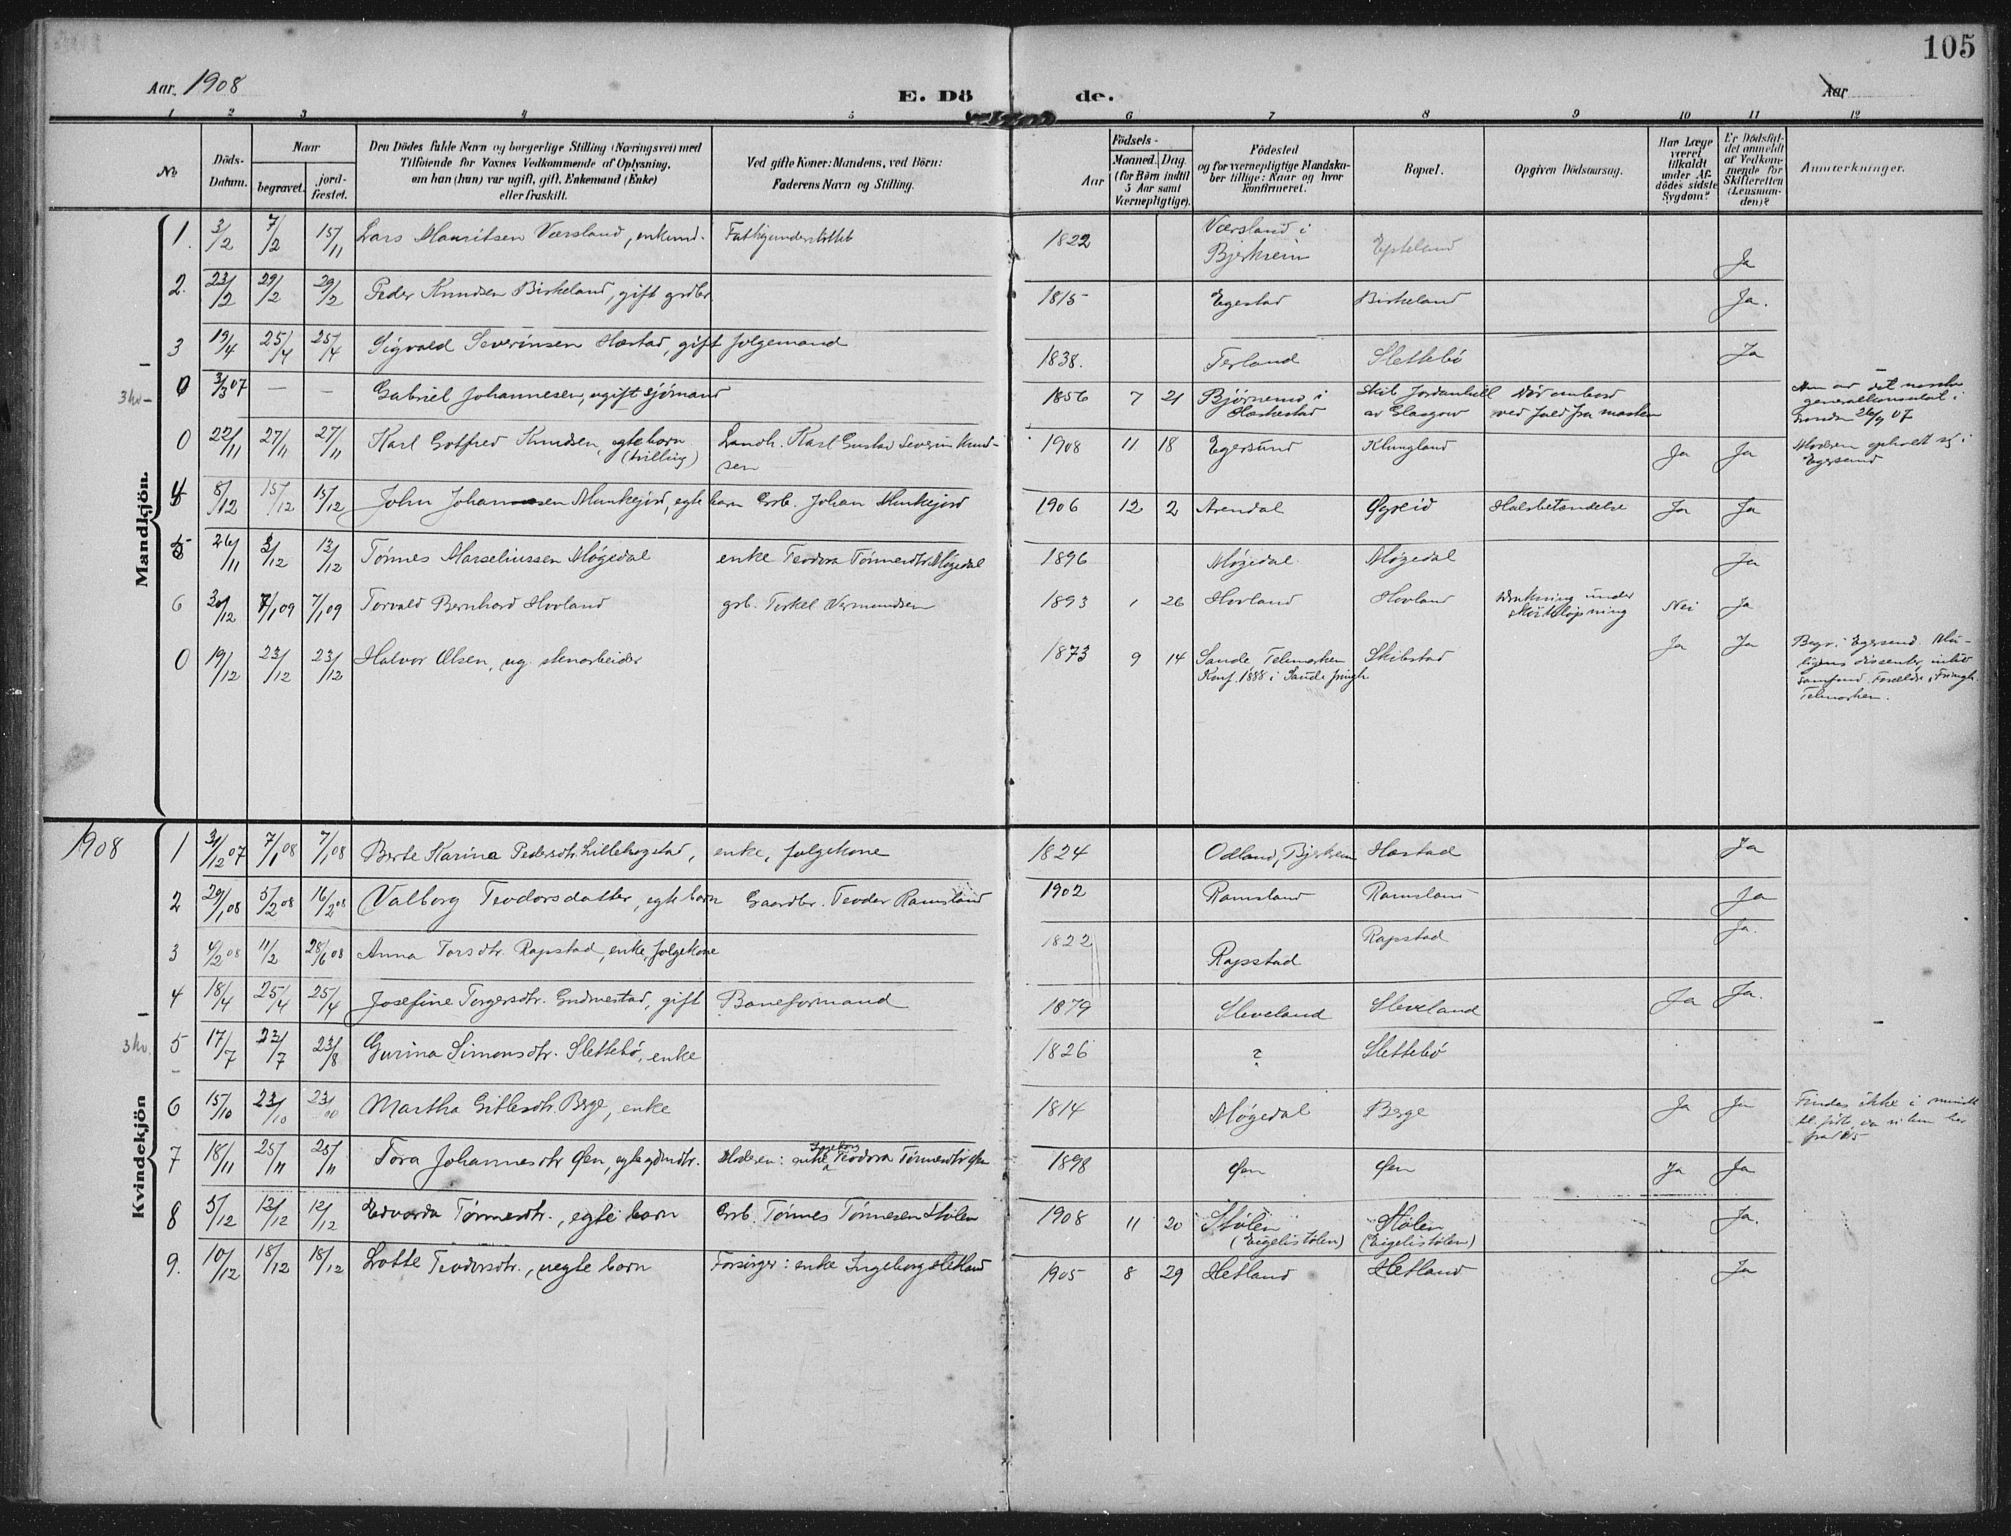 105
Aar 1908
E. Dö
de.
Aar
1 2 3 4 5 6 7 8 9 10 11 12
No
Döds-
Datum.
Naar
begravet.
jord-
fæstet.
Den Dödes fulde Navn og borgerlige Stilling (Næringsvei) med
Tilföiende for Voxnes Vedkommende af Oplysning,
om han (hun) var ugift, gift, Enkemand (Enke)
eller fraskilt.
Ved gifte Koner: Mandens, ved Börn:
Faderens Navn og Stilling.
Födsels-
Aar
Maaned. Dag.
(for Börn indtil
5 Aar samt
Værnepligtige).
Födested
og for værnepligtige Mandska-
ber tillige: Naar og hvor
konfirmeret.
Bopæl.
Opgiven Dödsaarsag.
Har Læge
været
tilkaldt
under Af-
dödes sidste
Sygdom?
Er Dödsfal-
det anmeldt
af Vedkom-
mende for
Skifteretten
(Lensman-
den)?
Anmerkninger.
Mandkjön.
1. 3/2 7/2 15/11 Lars Mauritsen Værsland, enkemd. Fattigunderstöttet 1822 Værsland i
Bjerkreim Epteland Ja
2. 23/2 29/2 29/2 Peder Knudsen Birkeland, gift grdbr 1815 Egestad Birkeland Ja.
3 19/4 25/4 25/4 Sigvald Severinsen Hæstad, gift folgemand 1838. Terland Slettebö Ja
3 kr –
0 3/3 07 — — Gabriel Johannesen, ugift sjømand 1856 7 21 Bjørnemo i
Hæskestad Skib Jordanhill
av Glasgow Dör ombord
ved fald fra masten det norske
generalkonsulat i
London 26/9 07
0 22/11 27/11 27/11 Karl Gotfred Knudsen, egte barn
(tvilling) Landh. Karl Gustav Severin Knud-
sen 1908 11 18 Egersund Klungland Ja Ja Moderen opholdt sig i
Egersund
4 8/12 15/12 15/12 John Johannesen Munkejord, egte barn Grb. Johan Munkejord 1906 12 2 Arendal Øgreid Halsbetændelse Ja Ja
5 26/11 3/12 13/12 Tönnes Marseliussen Møgedal enke Teodora Tönnesdtr Møgedal 1896 Møgedal Møgedal Ja
6 30/12 7/1 09 7/1 09 Torvald Bernhard Hovland grb. Torkel Vermundsen 1893 1 26 Hovland Hovland Drukning under
Skøiteløpning Nei Ja
0 19/12 23/12 23/12 Halvor Olsen, ug. stenarbeider 1873 9 14 Sande Telemarken
Konf. 1888 i Sande prmgh Skibstad Ja Ja Begr. i Egersund.
dissenter,
samfund. Forældre i
Telemarken.
1908
Kvindekjön
1 31/12 07 7/1 08 7/1 08 Berte Karina Pedersdtr. Lillehogstad, enke, folgekone 1824 Odland, Bjerkreim Hæstad Ja
2 29/1 08 5/2 08 16/2 08 Valborg Teodorsdatter, egte barn Gaardbr. Teodor Ramsland 1902 Ramsland Ramsland Ja
3 4/2 08 11/2 28/6 08 Anna Torsdtr. Rapstad, enke, folgekone 1822 Rapstad Rapstad Ja.
4 18/4 25/4 25/4 Josefine Torgersdtr. Gudmestad, gift Baneformand 1879 Sleveland Sleveland Ja Ja.
3 kr.
5 17/7 23/7 23/8 Gurina Simonsdtr. Slettebö, enke 1826 ? Slettebö
6 15/10 23/10 23/10 Martha Gitlesdtr. Berge, enke 1814 Møgedal Berge Ja Ja Findes ikke i
7 18/11 25/11 25/11 Tora Johannesdtr Øen, egte Moderen: enke Teodora Tönnesdtr Øen 1898 Øen Øen Ja Ja
8 5/12 12/12 12/12 Edvarda Tönnesdtr., egte barn Grb. Tönnes Tönnesen Stølen 1908 11 20 Stølen
(Eigelistølen) Stølen
(Eigelistølen) Ja.
9. 10/12 18/12 18/12 Lotte Teodorsdtr., uegte barn Forsörger: enke Ingeborg Hetland 1905 8 29 Hetland Hetland Ja